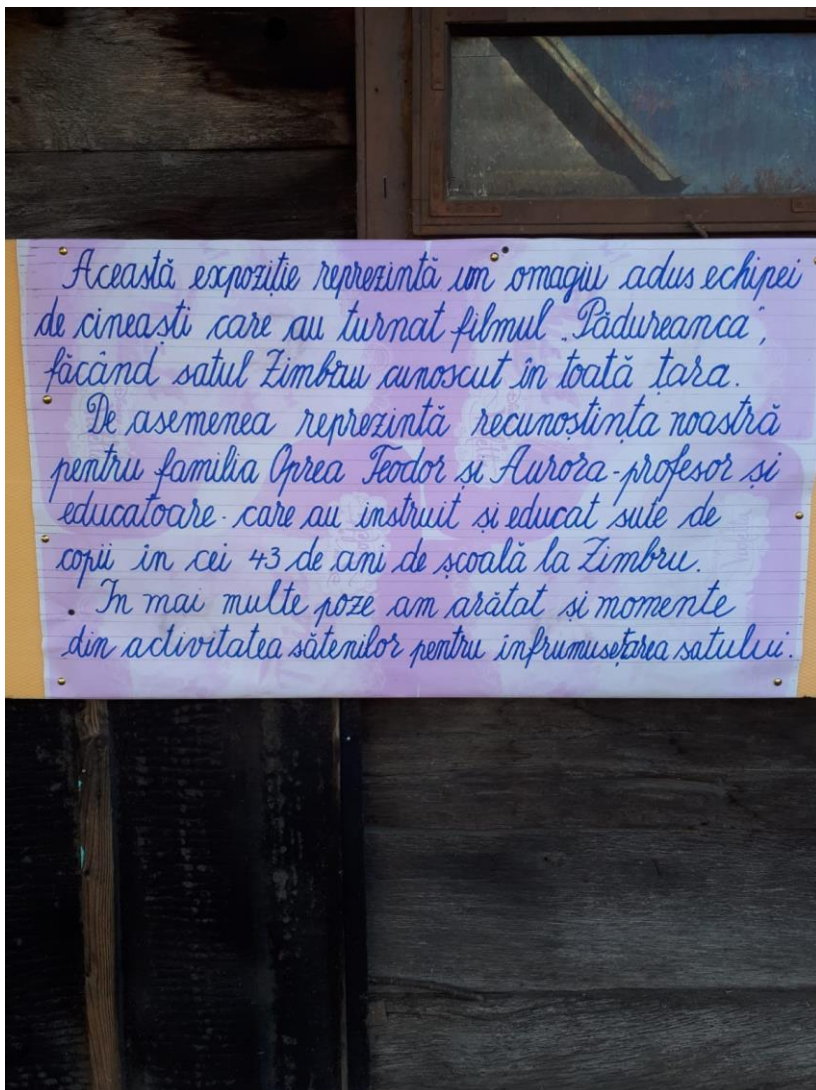 Această expoziție reprezintă un omagiu adus echipei
de cineaști care au turnat filmul „Pădureanca”,
făcând satul Zimbru cunoscut în toată țara.
De asemenea reprezintă recunoștința noastră
pentru familia Oprea Teodor și Aurora - profesor și
educatoare - care au instruit și educat sute de
copii in cei 43 de ani de școală la Zimbru.
In mai multe poze am arătat și momente
din activitatea sătenilor pentru infrumusețarea satului.